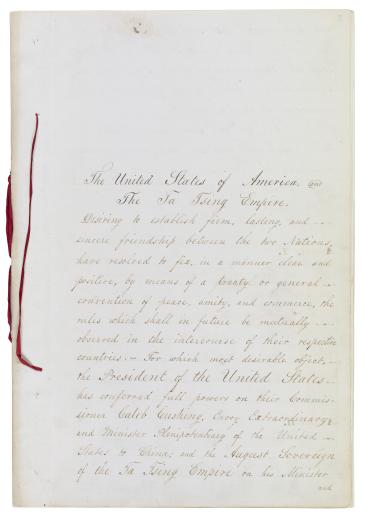 The United States of America, and
The Ta Tsing Empire,
Desiring to establish firm, lasting, and
sincere friendship between the two Nations,
have resolved to fix, in a manner clear and
positive, by means of a treaty or general
convention of peace, amity, and commerce, the
rules which shall in future be mutually
observed in the intercourse of their respective
countries:— For which most desirable object,
the President of the United States
has conferred full powers on their Commis-
sioner Caleb Cushing, Envoy Extraordinary
and Minister Plenipotentiary of the United
States to China; and the August Sovereign
of the Ta Tsing Empire on his Minister
and